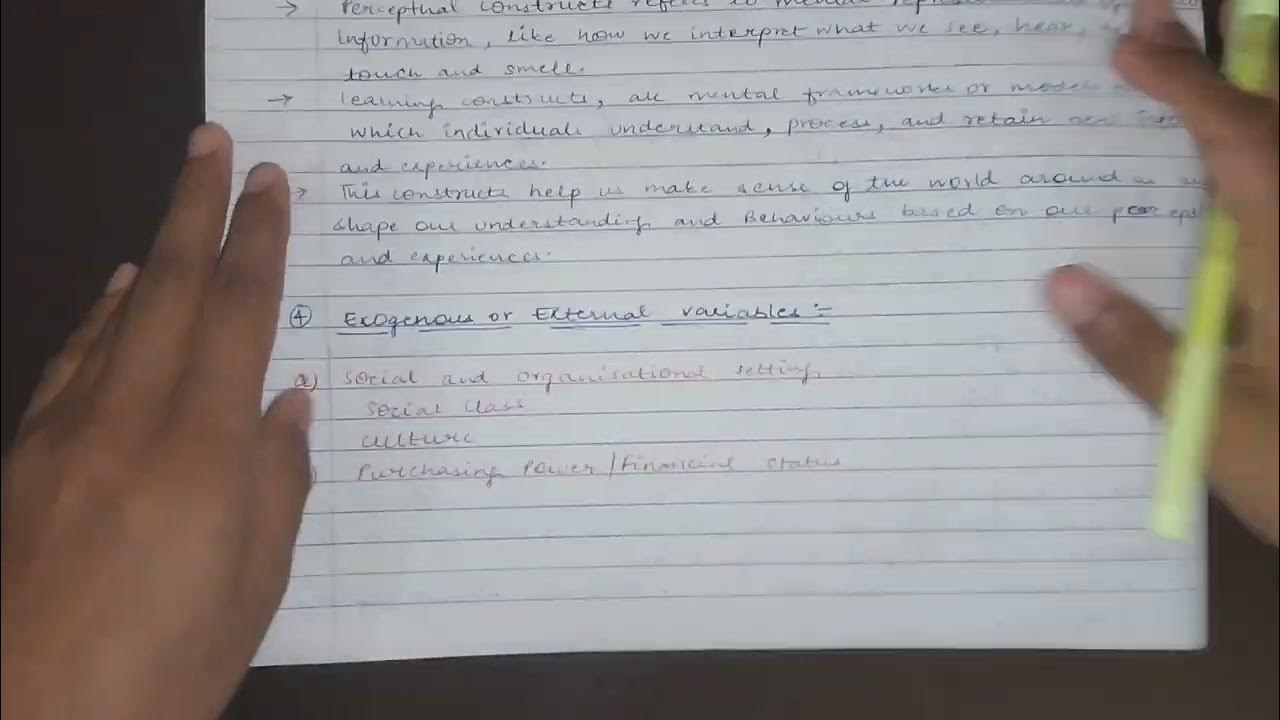 → Perceptual constructs refers to mental
information, like how we interpret what we see, hear,
touch and smell.
→ learning constructs, are mental frameworks or models
which individuals understand, process, and retain new
and experiences.
→ This constructs help us make sense of the world around us
shape our understanding and Behaviours based on our
and experiences.
④ Exogenous or External variables :-
a) Social and organisational setting
Social Class
Culture
) Purchasing Power/financial status